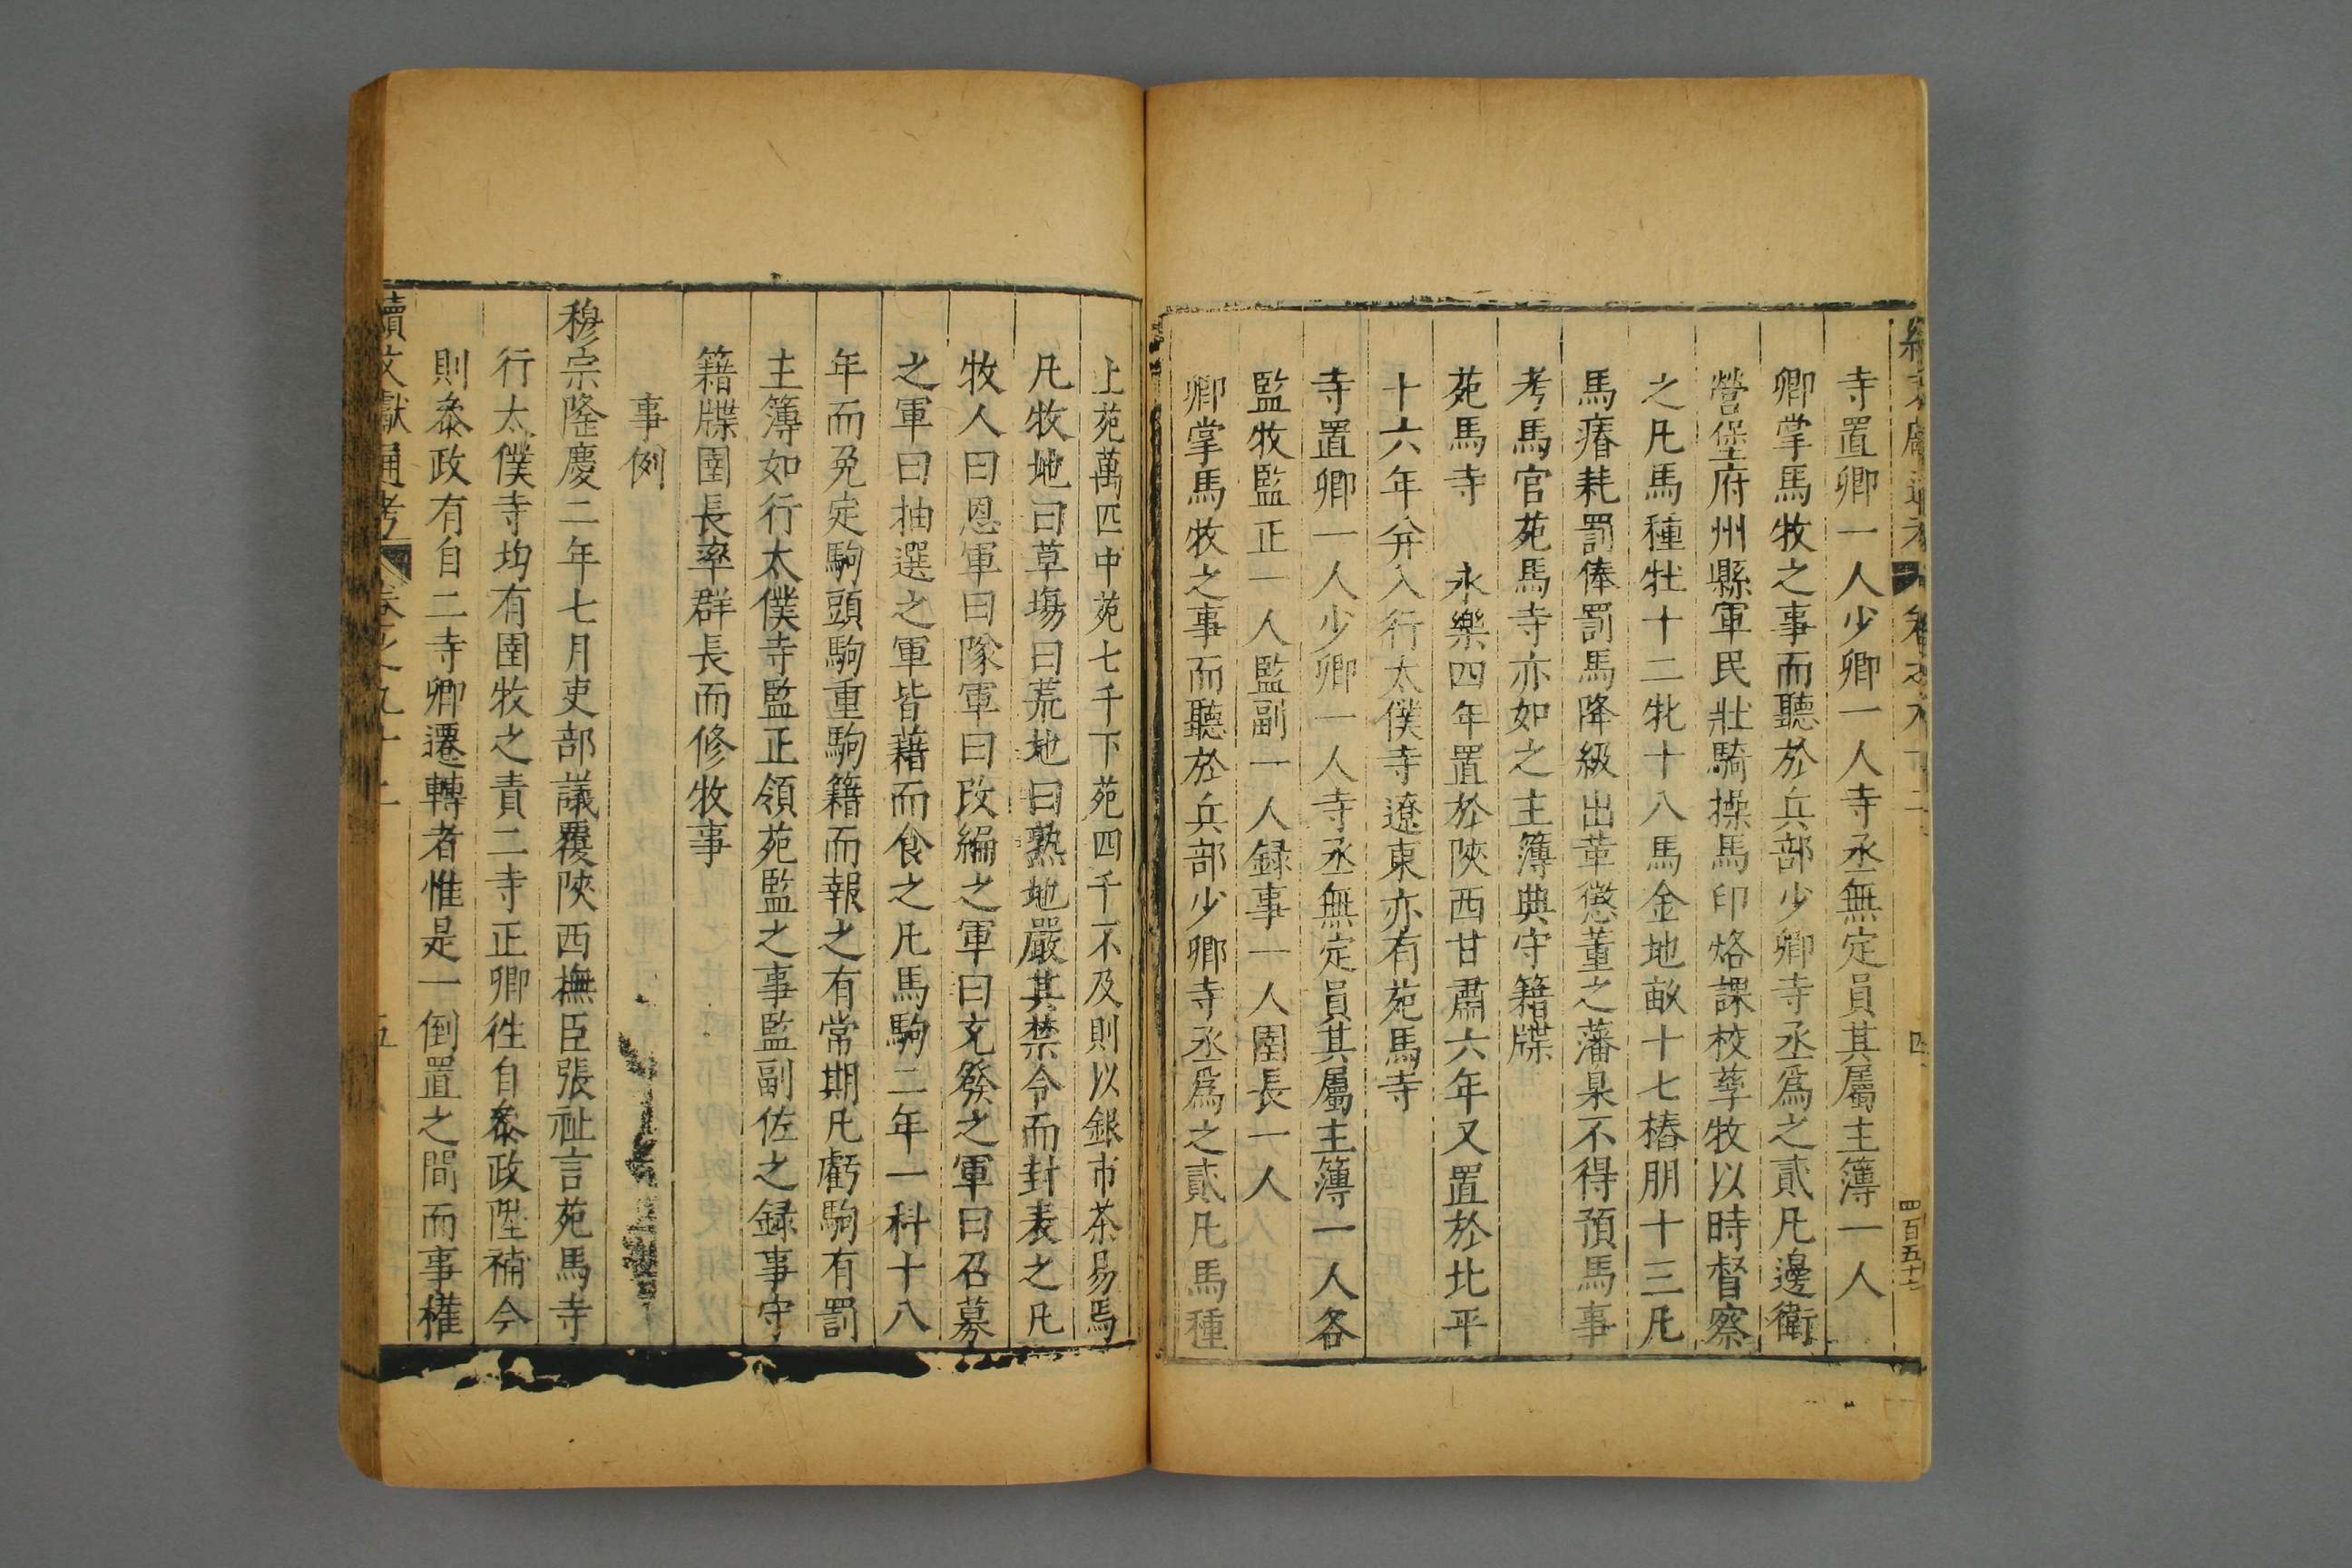 寺置卿一人少卿一人寺丞無定員其屬主簿一人
卿掌馬牧之事而聽於兵部少卿寺丞爲之貳凡邊衛
營堡府州縣軍民壯騎操馬印烙課校孳牧以時督察
之凡馬種牡十二牝十八馬金地畝十七樁朋十三凡
馬瘠耗罰俸罰馬降級出革懲董之藩臬不得預馬事
考馬官苑馬寺亦如之主簿典守籍牒
苑馬寺 永樂四年置於陝西甘肅六年又置於北平
十六年并入行太僕寺遼東亦有苑馬寺
寺置卿一人少卿一人寺丞無定員其屬主簿一人各
監牧監正一人監副一人録事一人圉長一人
卿掌馬牧之事而聽於兵部少卿寺丞爲之貳凡馬種
四
四百五十七
上苑萬匹中苑七千下苑四千不及則以銀市茶易焉
凡牧地曰草塲曰荒地曰熟地嚴其禁令而封表之凡
牧人曰恩軍曰隊軍曰改編之軍曰充發之軍曰召募
之軍曰抽選之軍皆藉而食之凡馬駒二年一科十八
年而免定駒頭駒重駒籍而報之有常期凡虧駒有罰
主簿如行太僕寺監正領苑監之事監副佐之録事守
籍牒圉長率群長而修牧事
事例
穆宗隆慶二年七月吏部議覆陝西撫臣張祉言苑馬寺
行太僕寺均有圉牧之責二寺正卿徃自叅政陞補今
則叅政有自二寺卿遷轉者惟是一倒置之間而事權
續文獻通考 卷之九十二 五